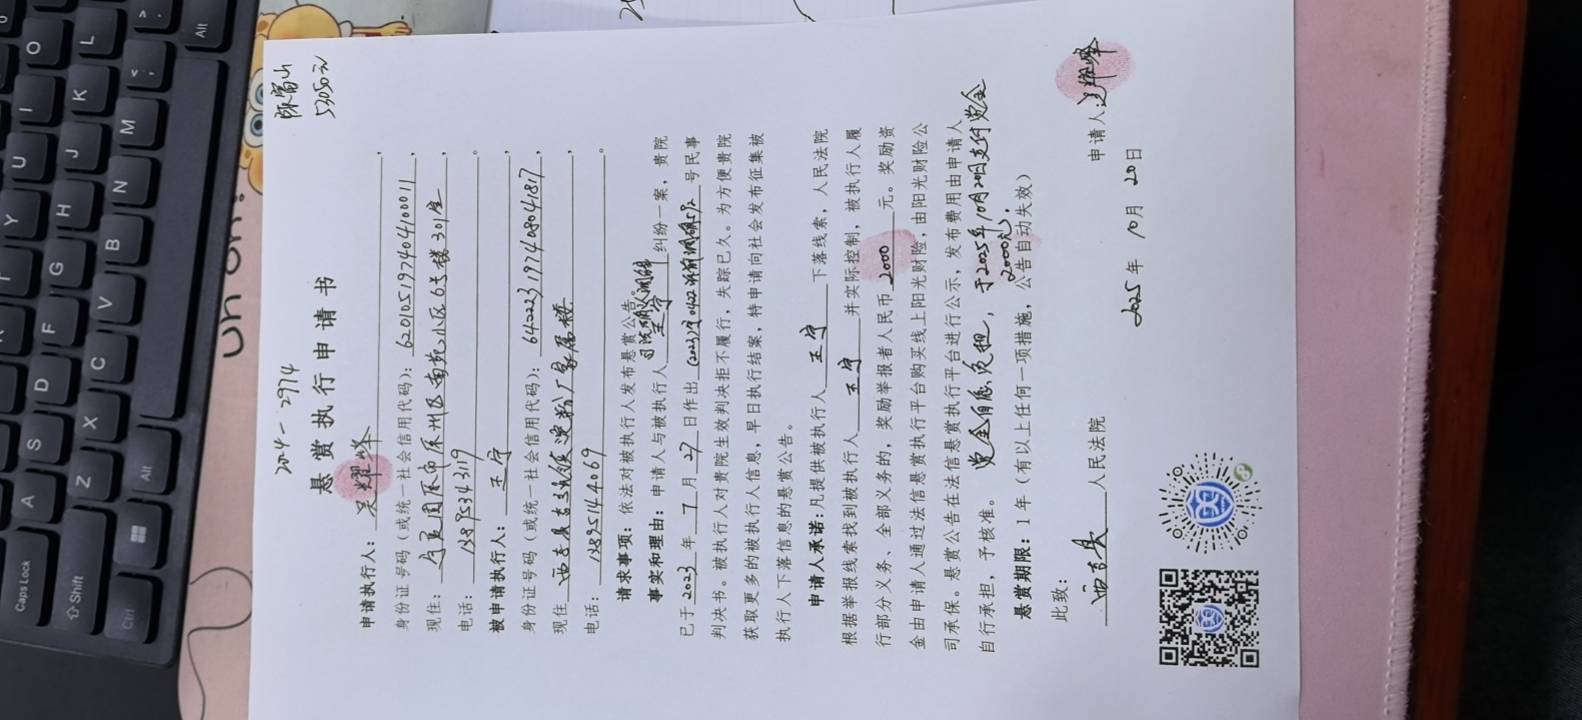 2024-2974
悬赏执行申请书
申请执行人:吴耀峰,
身份证号码(或统一社会信用代码):620105197404100011,
现住:宁夏固原市原州区南苑小区6号楼301室,
电话:13895343119。
被申请执行人:王宁,
身份证号码(或统一社会信用代码):642223197408041817,
现住 西吉县吉强镇淀粉厂家属楼,
电话:13895144069。
请求事项:依法对被执行人发布悬赏公告。
事实和理由:申请人与被执行人 王宁 司法确认调解 纠纷一案,贵院
已于2023年7月27日作出(2023)宁0422诉前调确572号民事
判决书。被执行人对贵院生效判决拒不履行,失踪已久。为方便贵院
获取更多的被执行人信息,早日执行结案,特申请向社会发布征集被
执行人下落信息的悬赏公告。
申请人承诺:凡提供被执行人 王宁 下落线索,人民法院
根据举报线索找到被执行人 王宁 并实际控制,被执行人履
行部分义务、全部义务的,奖励举报者人民币2000元。奖励资
金由申请人通过法信悬赏执行平台购买线上阳光财险,由阳光财险公
司承保。悬赏公告在法信悬赏执行平台进行公示,发布费用由申请人
自行承担,予核准。 赏金自愿负担,于2025年10月20日支付赏金
2000元。
悬赏期限:1年(有以上任何一项措施,公告自动失效)
此致:
西吉县人民法院
申请人:吴耀峰
2025年10月20日
530502
Caps Lock
A
S
D
F
G
H
J
K
L
Shift
Z
X
C
V
B
N
M
Ctrl
Alt
Alt
Y
U
I
O